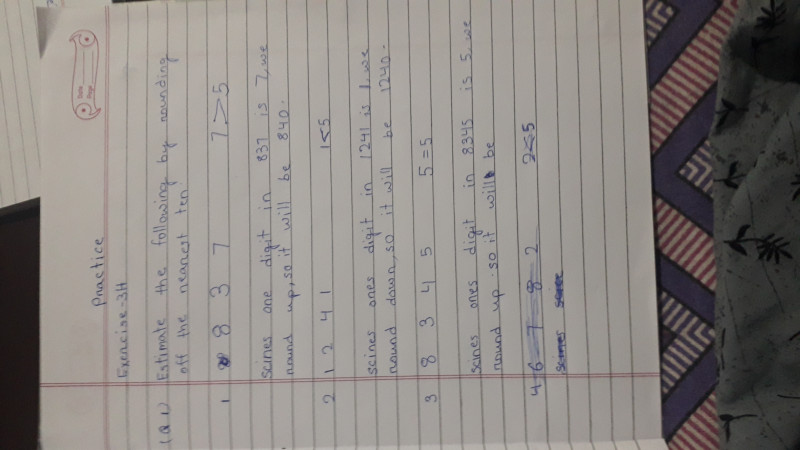 Date
Page
Practice
Exercise-3H
(Q1) Estimate the following by rounding
off the nearest ten
1 837 7>5
scines one digit in 837 is 7, we
round up, so it will be 840.
2 1241 1<5
scines ones digit in 1241 is 1. we
round down, so it will be 1240.
3 8345 5=5
scines ones digit in 8345 is 5, we
round up. so it will be
4 6782 2<5